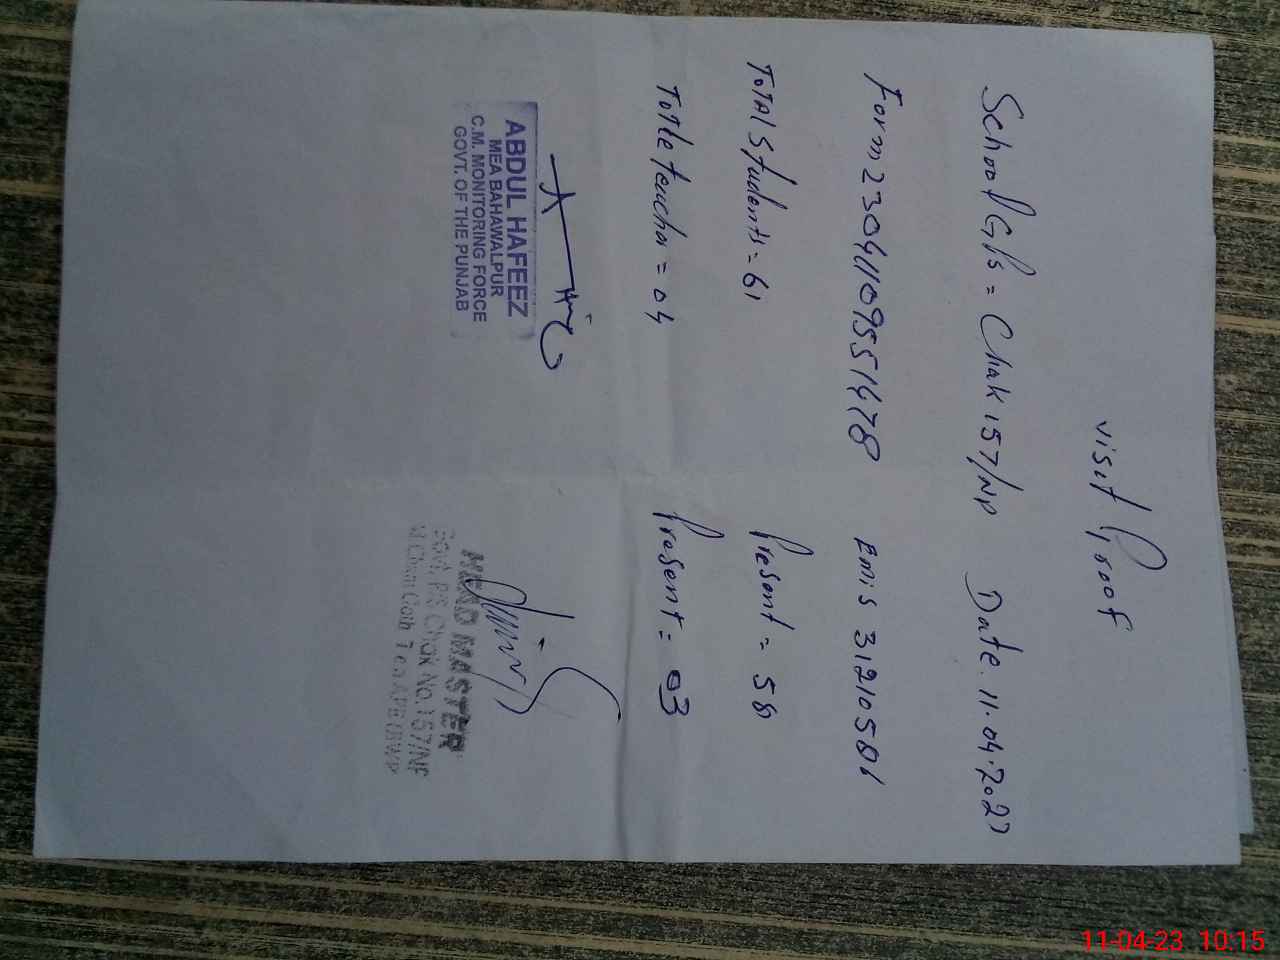 visit Proof
School GPs = Chak 157/NP Date. 11.04.2023
Form 230411095551478 Emis 31210501
TOTAL Students = 61 Present = 58
Totle teacher = 04 Present = 03
ABDUL HAFEEZ
MEA BAHAWALPUR
C.M. MONITORING FORCE
GOVT. OF THE PUNJAB
HEAD MASTER
Govt. P/S Chak No.157/NP
11-04-23 10:15